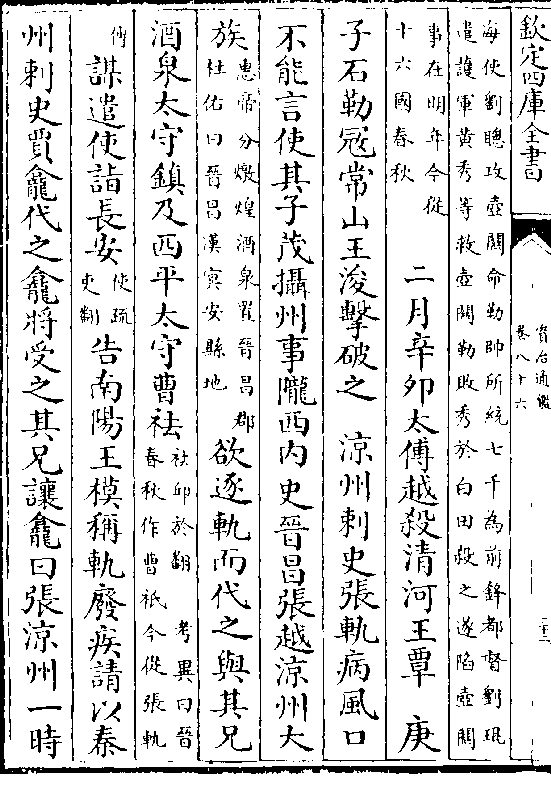 欽定四庫全書
資治通鑑
卷八十六
海使劉聰攻壺關命勒帥所統七千為前鋒都督劉琨
遣護軍黄秀等救壺關勒敗秀於白田殺之遂陷壺關
事在明年今從
十六國春秋
二月辛卯太傅越殺清河王覃　庚
子石勒冦常山王浚擊破之　涼州刺史張軌病風口
不能言使其子茂攝州事隴西内史晉昌張越涼州大
族
惠帝分燉煌酒泉置晉昌郡
杜佑曰晉昌漢㝠安縣地
欲逐軌而代之與其兄
酒泉太守鎮及西平太守曹祛
祛卭於翻　考異曰晉
春秋作曹祗今從張軌
傳
謀遣使詣長安
使疏
吏翻
告南陽王模稱軌廢疾請以秦
州刺史賈龕代之龕將受之其兄讓龕曰張涼州一時